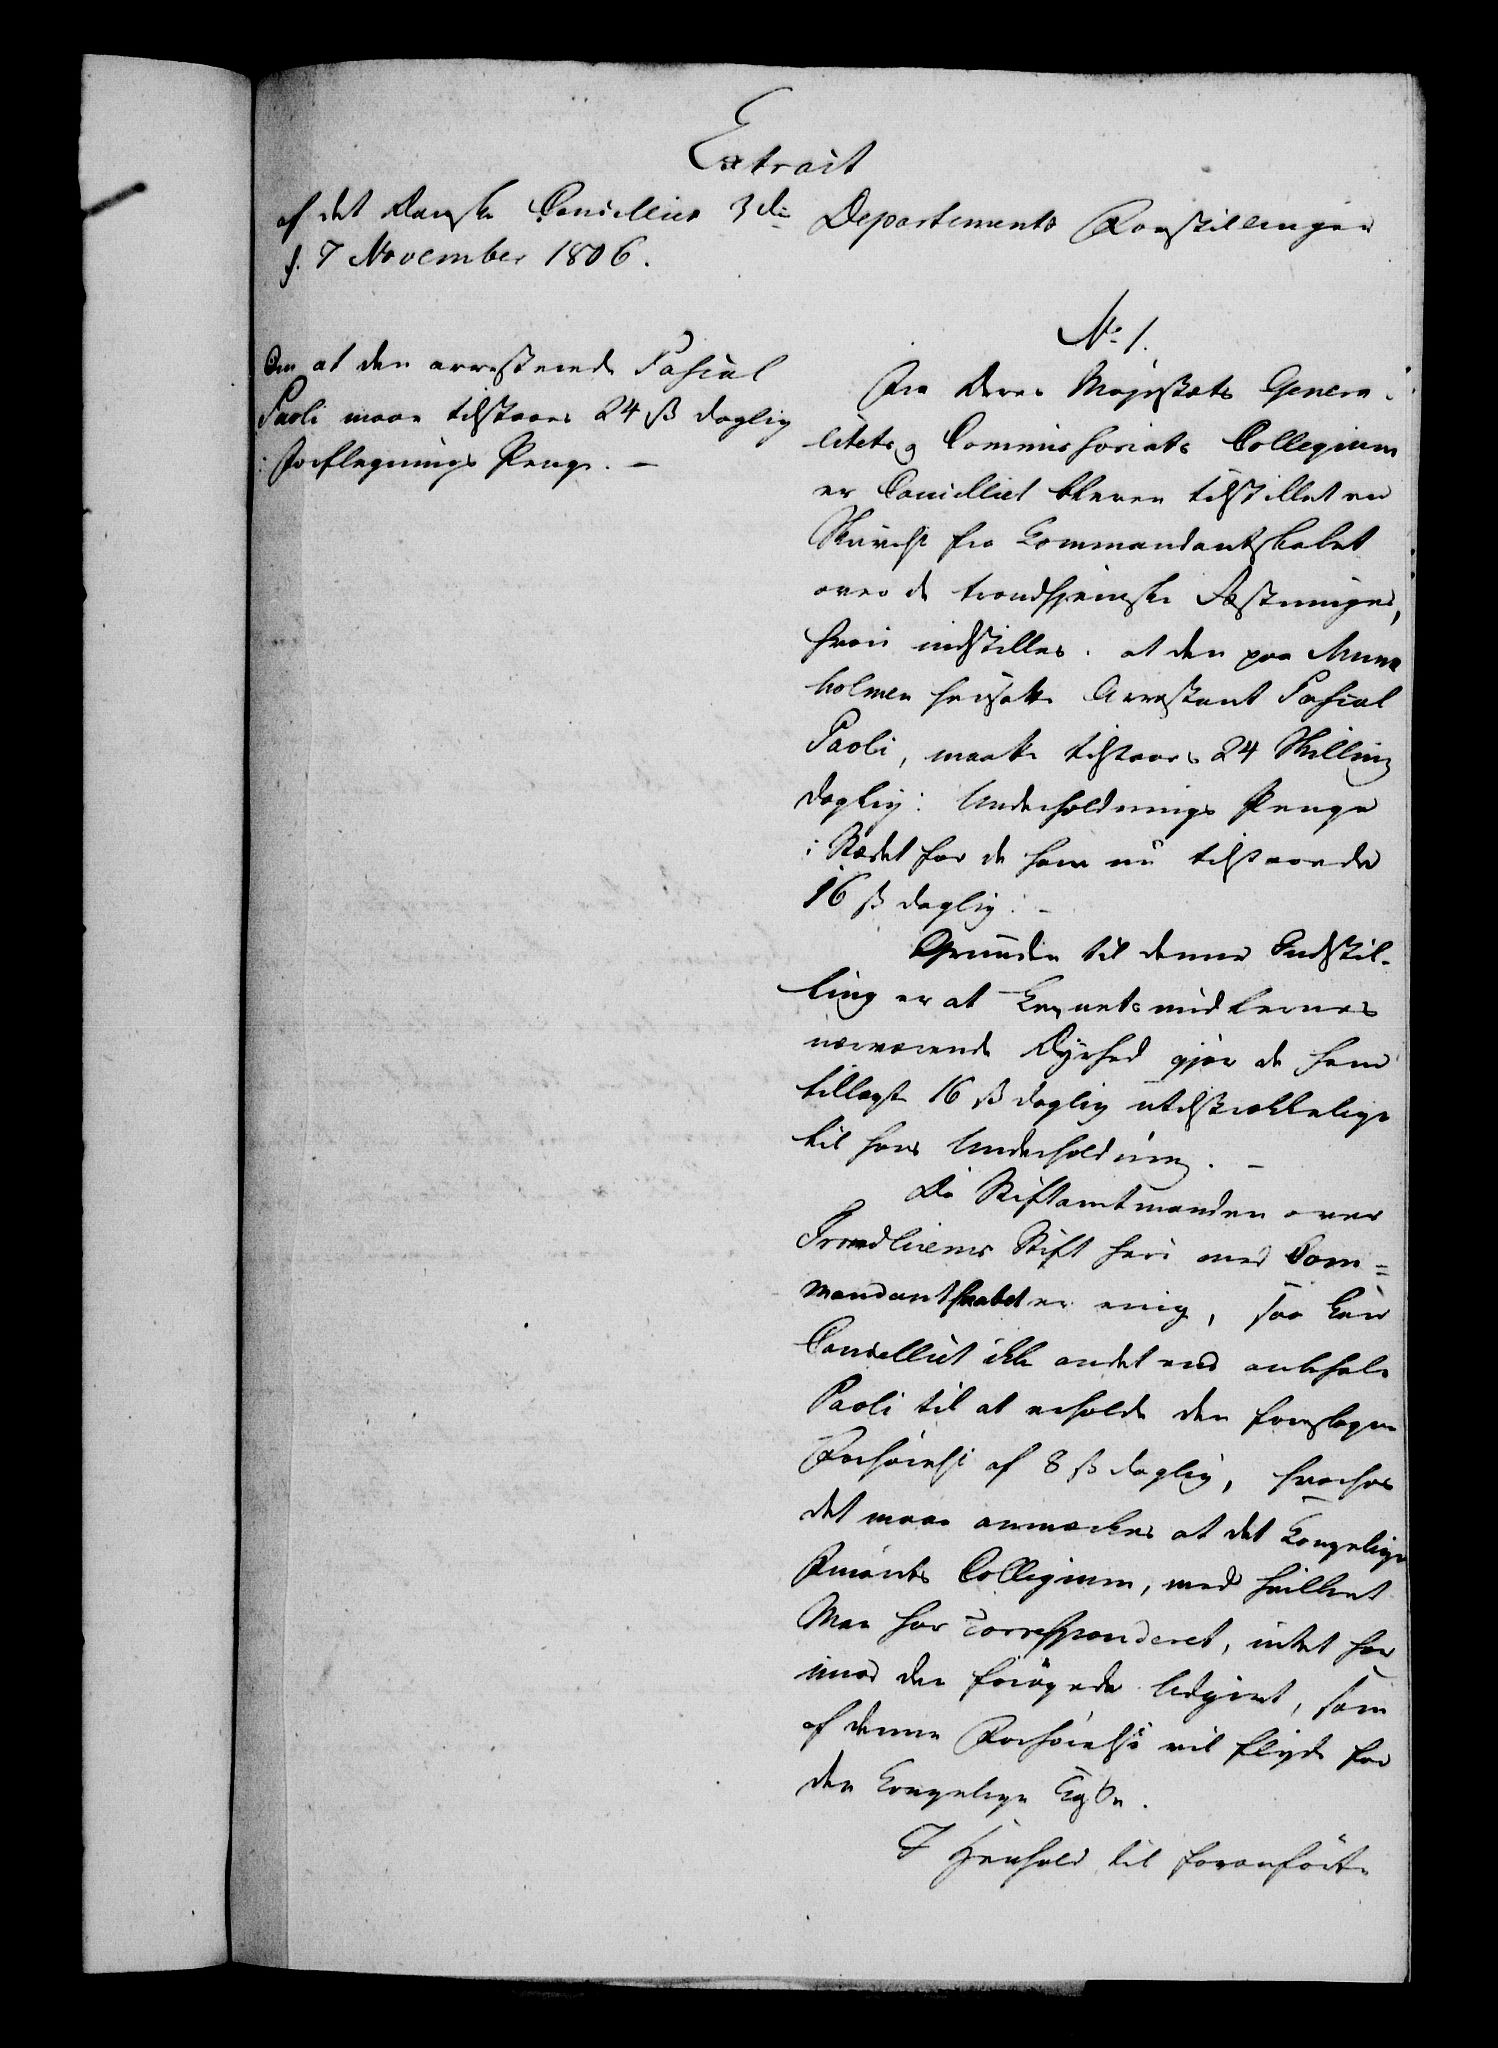 Extrait
af det Danske Cancellies 3die Departements Forestillinger
f. 7 November 1806.
Om at den arresterede Pascal
Paoli maae tilstaaes 24 ß daglig
i Forflegnings Penge. —
No 1.
Fra Deres Majestæts Genera-
litets og Commissariats Collegium
er Cancelliet bleven tilstillet en
Skrivelse fra Commandantskabet
over de trondhjemske Fæstninger,
hvori indstilles at den paa Munk
holmen hensatte Arrestant Pascal
Paoli, maatte tilstaaes 24 Skilling
daglig i Underholdnings Penge
i Stædet for de ham nu tilstaaede
16 ß daglig. —
Grunden til denne Indstil-
ling er at Levnetsmidlernes
nærværende Dyrhed gjør de ham
tillagte 16 ß daglig utilstrækkelige
til hans Underholdning. —
Da Stiftamtmanden over
Trondhiems Stift heri med Com=
mandantskabet er enig, saa kan
Cancelliet ikke andet end anbefale
Paoli til at erholde den foreslagne
Forhøielse af 8 ß daglig, hvorhos
det maae anmærkes at det Kongelige
Finants Collegium, med hvilket
Man har corresponderet, intet har
imod den forøgede Udgivt, som
af denne Forhøielse vil flyde for
den Kongelige Casse.
I Henhold til foranførte